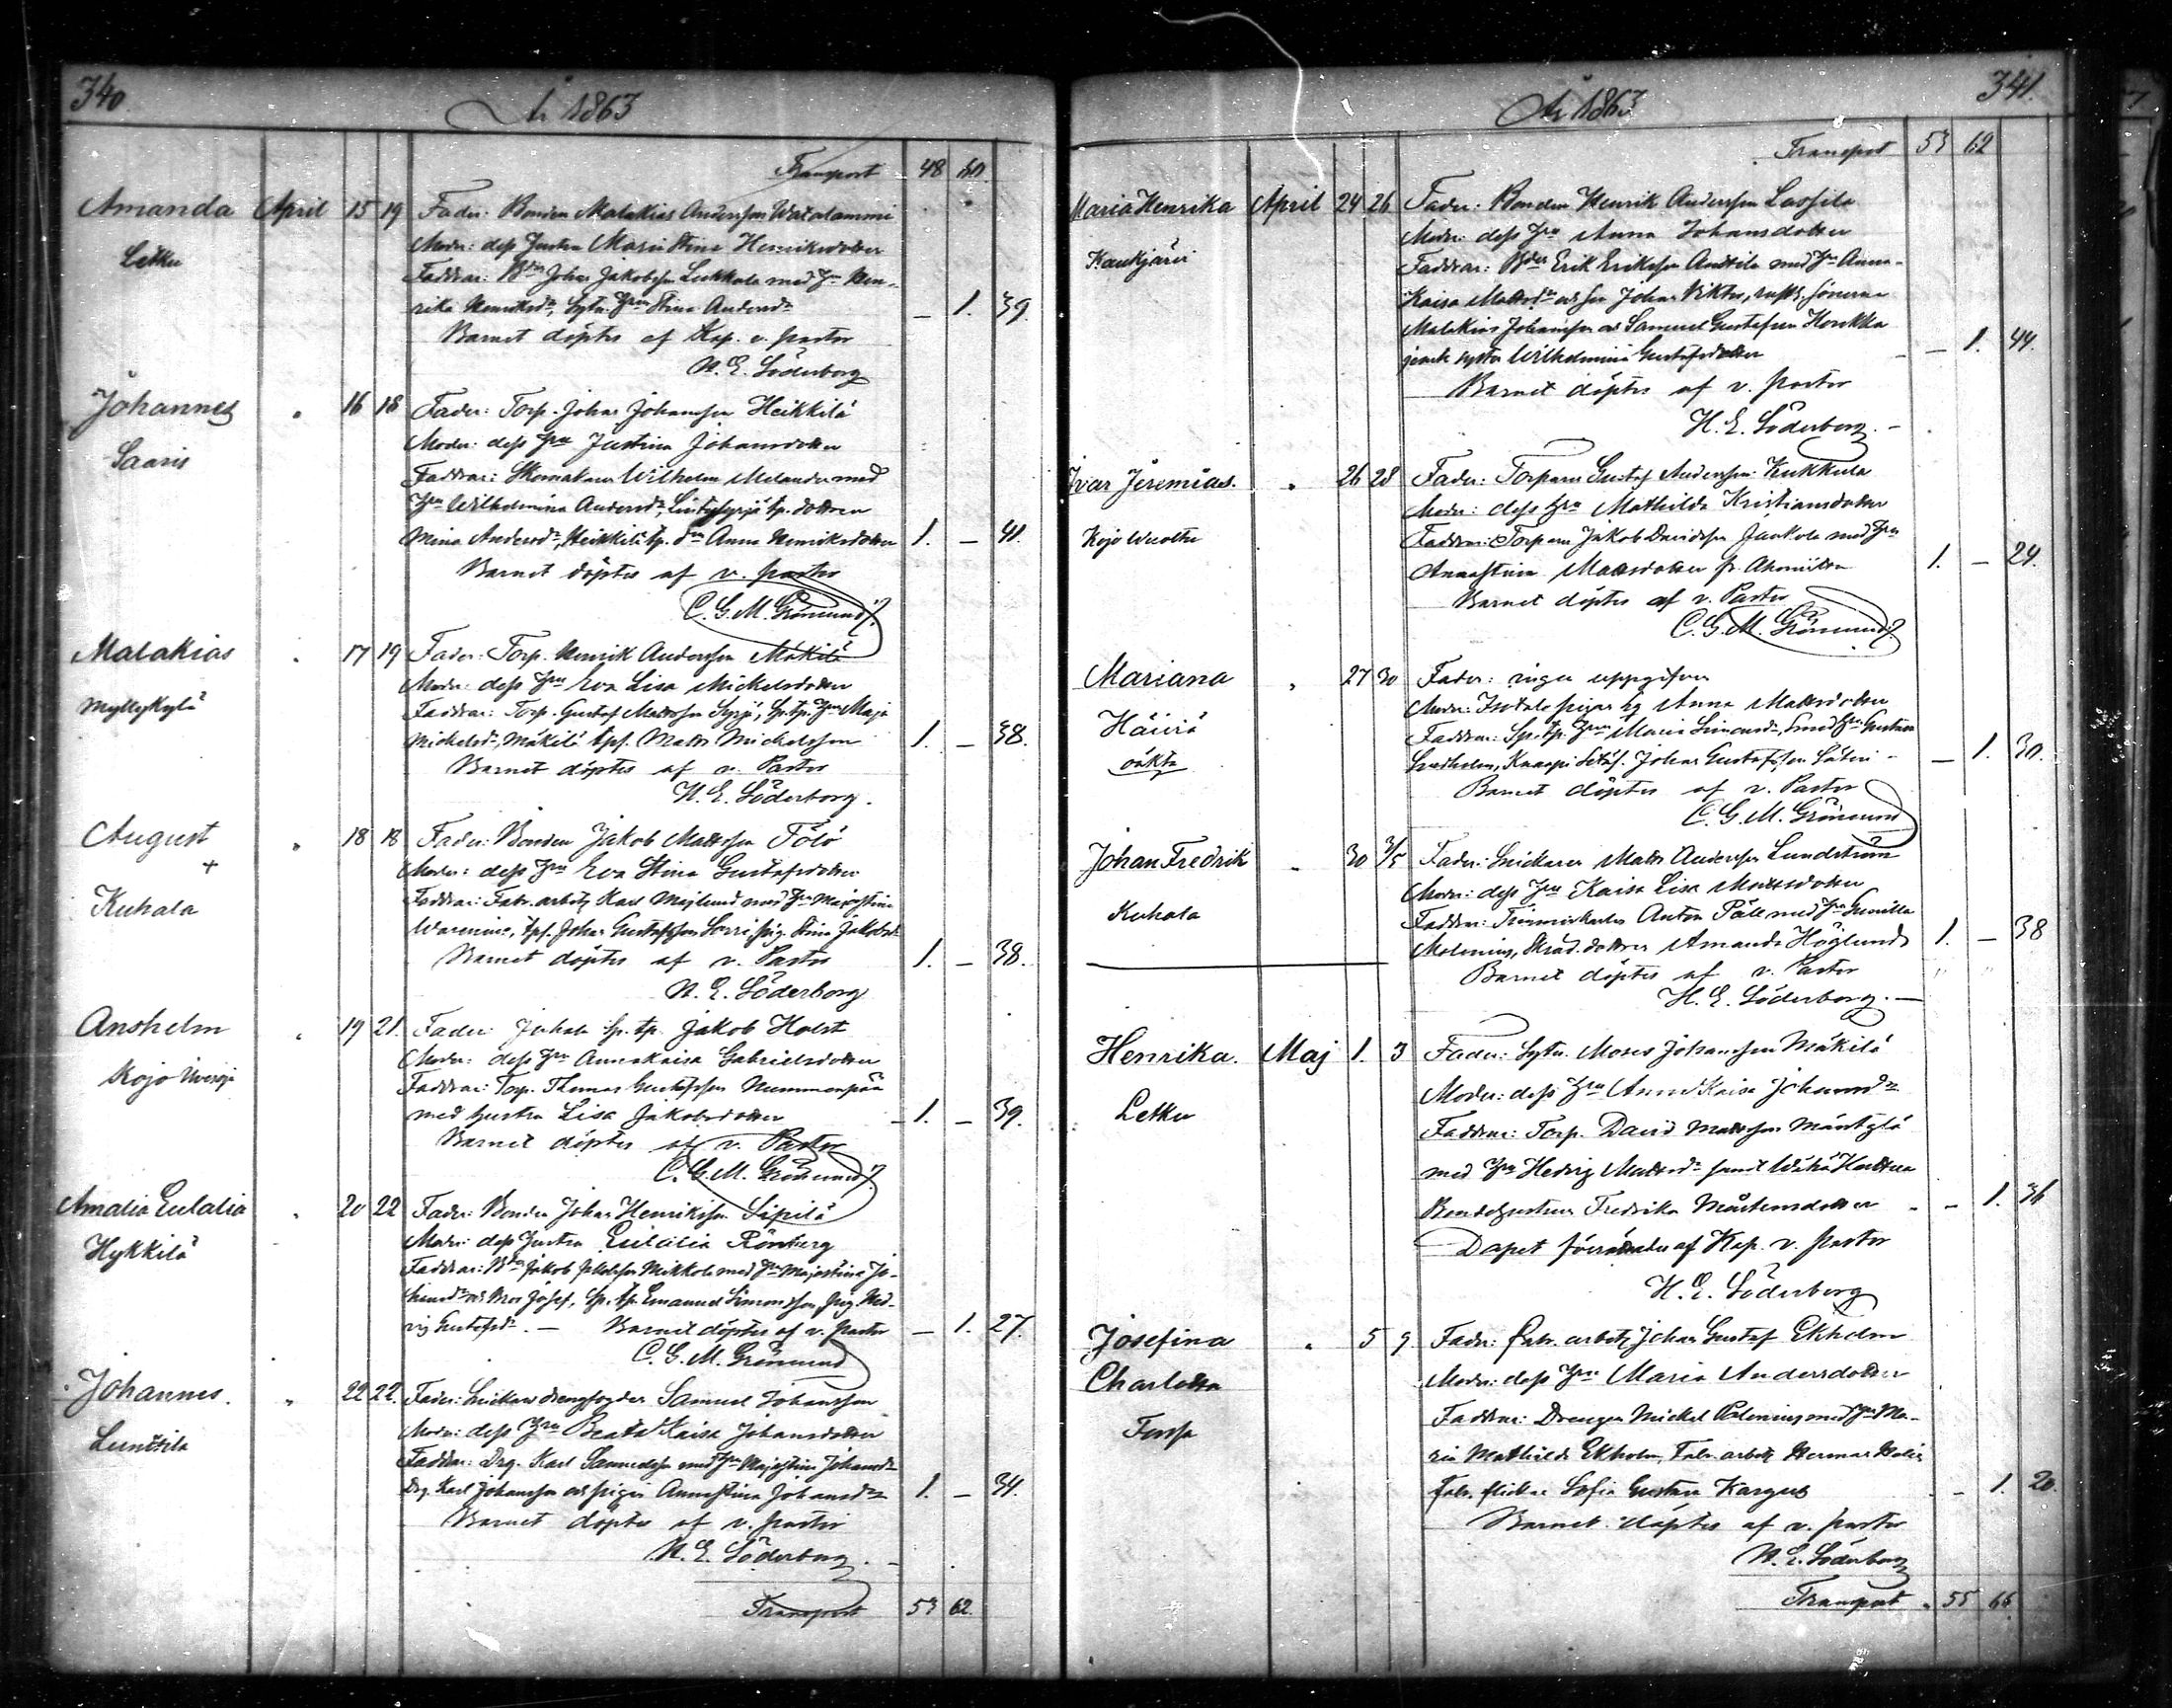 340
År 1863
Transport 48 60.
Amanda April 15 19 Fader: Bonden Malakias Andersson
Letku Moder: dess hustru Maria Stina Henriksdotter
Faddrar: Johan Jakobsson Lukkala med Hen-
rika Henriksdr, Sytn. hru Stina Andersdr — 1. 39.
Barnet döptes af Kap. v. pastor
H. E. Söderborg
Johannes " 16 18 Fader: Torp. Johan Johansson Heikkilä
Moder: dess hru Justina Johansdotter
Saaris
Faddrar: Skomakaren Wilhelm Melander med
hru Wilhelmina Andersdr, tp. dottren
Mina Andersdr, Heikkilä tp. Anna Henriksdotter 1. — 41.
Barnet döptes af v. pastor
C. G. M. Grönmund
Malakias " 17 19 Fader: Torp. Henrik Andersson Mäkilä
Moder: dess hru Eva Lisa Mickelsdotter
Myllykylä Faddrar: Torp. Gustaf Mattsson Syrjä, Sp. tp. hru Maja
Mickelsdr, Mäkilä tps. Matts Mickelsson 1. — 38.
Barnet döptes af v. Pastor
H. E. Söderborg.
August " 18 18 Fader: Bonden Jakob Mattsson Tölö
+ Moder: dess hru Eva Stina Gustafsdotter
Kuhala Faddrar: Fabr. arbetz Karl Majlund med hru Majastina
Warenius, tps. Johan Gustafsson Sorri, pig. Stina Jakobsdr
Barnet döptes af v. Pastor 1. — 38.
H. E. Söderborg
Anshelm " 19 21. Fader: Sp. tp. Jakob Holst
Moder: dess hru Annakaisa Gabrielsdotter
Kojo Faddrar: Torp. Thomas Gustafsson Nummenpää
med hustru Lisa Jakobsdotter — 1. — 39.
Barnet döptes af v. Pastor
C. G. M. Grönmund
Amalia Eulalia " 20 22 Fader: Bonden Johan Henriksson Sipilä
Hykkilä Moder: dess hustru Eulalia Rönberg
Faddrar: Jakob Jakobsson Mikkola med hru Majastina Jo-
Josef, Sp. tp. Emanuel Simonsson pig. Hed-
vig Gustafsdr. — Barnet döptes af v. pastor — 1. 27.
C. G. M. Grönmund
Johannes. " 22 22. Fader: Snickare drengfogden Samuel Johansson
Moder: dess hru Beata Kaisa Johansdotter
Faddrar: Drg. Karl Samuelsson med hru Majastina Johansdr
Drg. Karl Johansson och pigan Annastina Johansdr 1. — 34.
Barnet döptes af v. pastor
H. E. Söderborg. —
Transport 53 62.
341.
År 1863
Transport 53 62
Maria Henrika April 24 26 Fader: Bonden Henrik Andersson Lassila
Moder: dess hru Anna Johansdotter
Kaukjärvi Faddrar: Erik Eriksson Anttila med hru Anna-
Kaisa Mattsdr och son Johan Viktor, sönerna
Malakias Johansson och Samuel Gustafsson Honkka
jemte syster Wilhelmina Gustafsdotter — 1. 44.
Barnet döptes af v. pastor
H. E. Söderborg. —
Ivar Jeremias. " 26 28 Fader: Torparen Gustaf Andersson Kukkula
Moder: dess hru Mathilda Kristiansdotter
Kojo Faddrar: Torparen Jakob Davidsson med hru
Annastina Mattsdotter fr. 1. — 24.
Barnet döptes af v. Pastor
C. G. M. Grönmund
Mariana " 27 30 Fader: ingen uppgifven
Moder: pigan Anna Mattsdotter
Häiviä Faddrar: Sp. tp. hru Maria Simonsdr, Smed hru Gustava
oäkta Johan Gustafsson — — 1. 30.
Barnet döptes af v. Pastor
C. G. M. Grönmund
Johan Fredrik " 30 3/5 Fader: Snickaren Matts Andersson Lundström
Moder: dess hru Kaisa Lisa Mattsdotter
Kuhala Faddrar: Timmerkarlen Anton Päll med hru Gunilla
Molenius, Skräd. dottren Amanda Höglund 1. — 38
Barnet döptes af v. Pastor
H. E. Söderborg. —
Henrika. Maj 1. 3 Fader: Sytn. Moses Johansson Mäkilä
Moder: dess hru Anna Kaisa Johansdr
Letku Faddrar: Torp. David Mattsson Mäntylä
med hru Hedvig Mattsdr samt
Bondehustrun Fredrika Mårtensdotter — 1. 36
Dopet förrättades af Kap. v. pastor
H. E. Söderborg
Josefina " 5 9 Fader: Fabr. arbetz Johan Gustaf Ekholm
Charlotta Moder: dess hru Maria Andersdotter
Forssa Faddrar: Drengen Mickel Palenius med hru Ma-
ria Mathilda Ekholm, Fabr. arbetz Herman
Fabr. flickan Sofia Gustava Kargus — 1. 20.
Barnet döptes af v. pastor
H. E. Söderborg
Transport 55 66